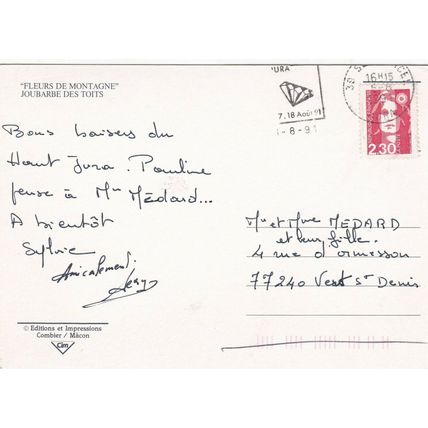 "FLEURS DE MONTAGNE"
JOUBARBE DES TOITS
Bons baisers du
Haut Jura. Pauline
pense à Mr Médard...
A bientôt
Sylvie
Amicalement.
© Editions et Impressions
Combier / Mâcon
Cim
URA
7.18 Août 91
-8-91
39
16H15
6-8
2,30
Mr et Mme MEDARD
et leur fille.
4 rue d'ormesson
77240 Vert St Denis